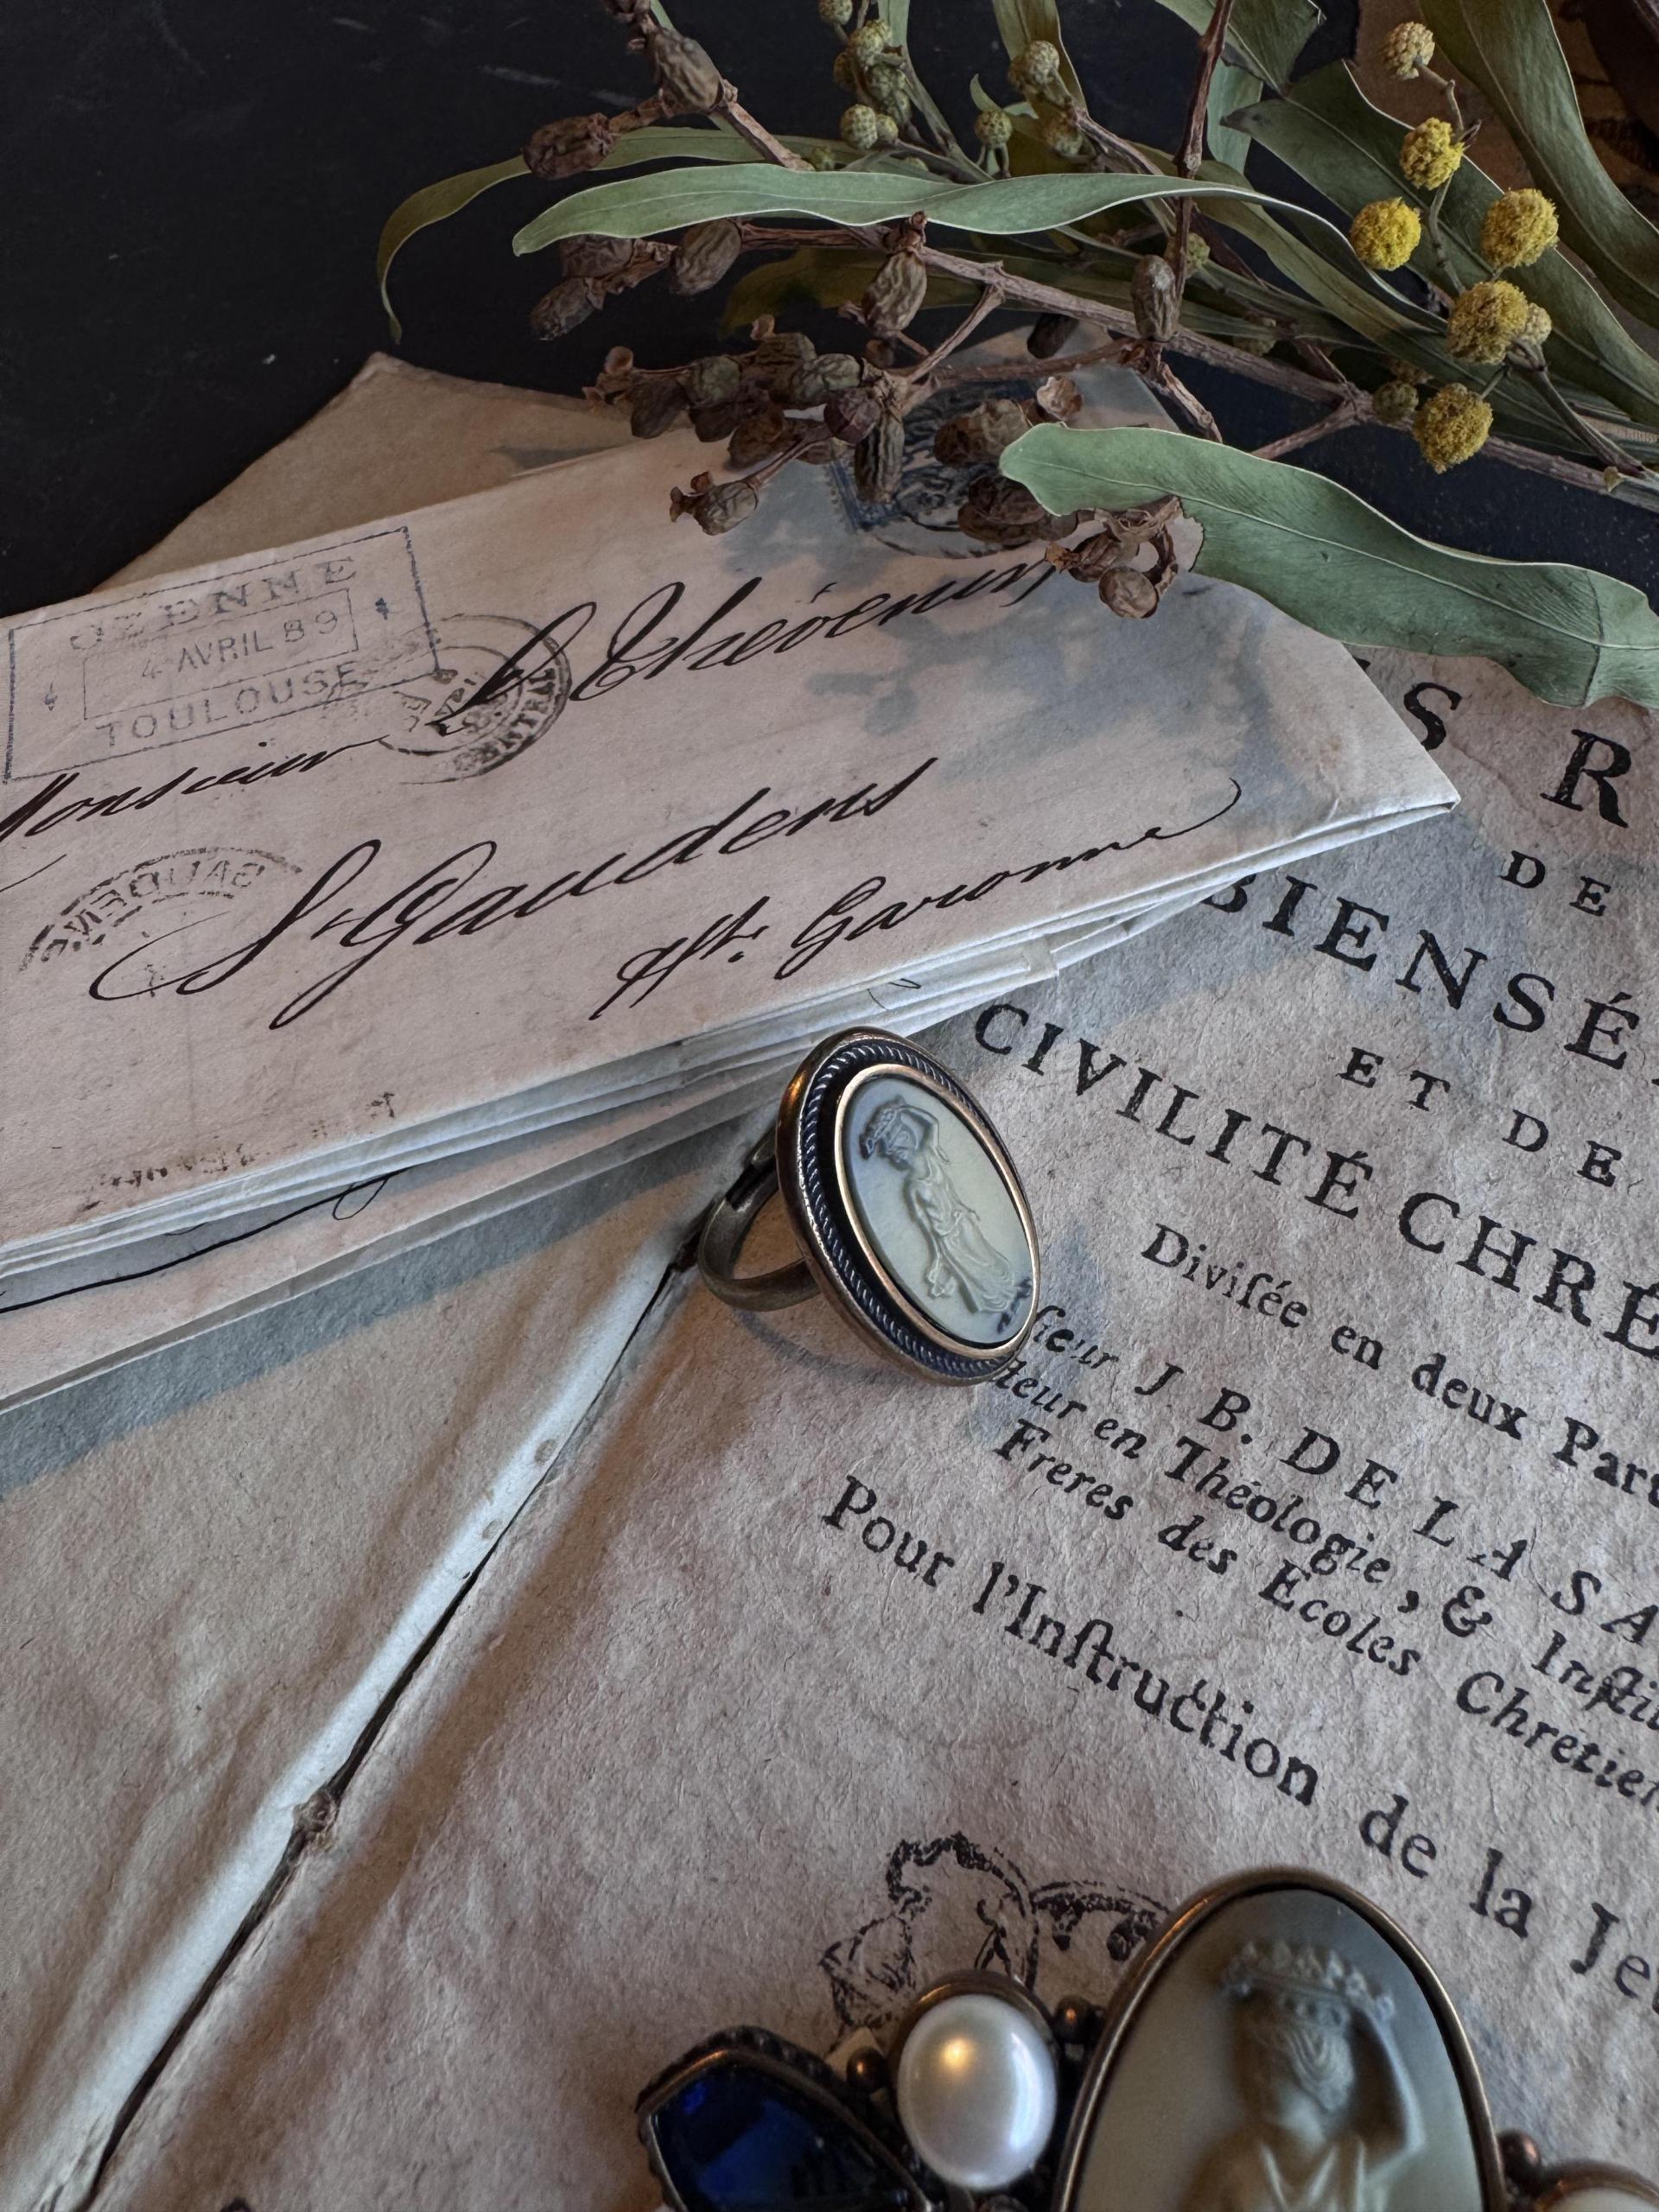 OZENNE
4 AVRIL 89
TOULOUSE
CENTRAL
Monsieur L Thévenin
St Gaudens
Hte. Garonne
S R
DE
BIENSÉ
ET DE
CIVILITÉ CHRÉ
Diviſée en deux Part
ſieur J B. DE LA SA
teur en Théologie, & Inſtit
Freres des Ecoles Chrétien
Pour l'Inſtruction de la Je